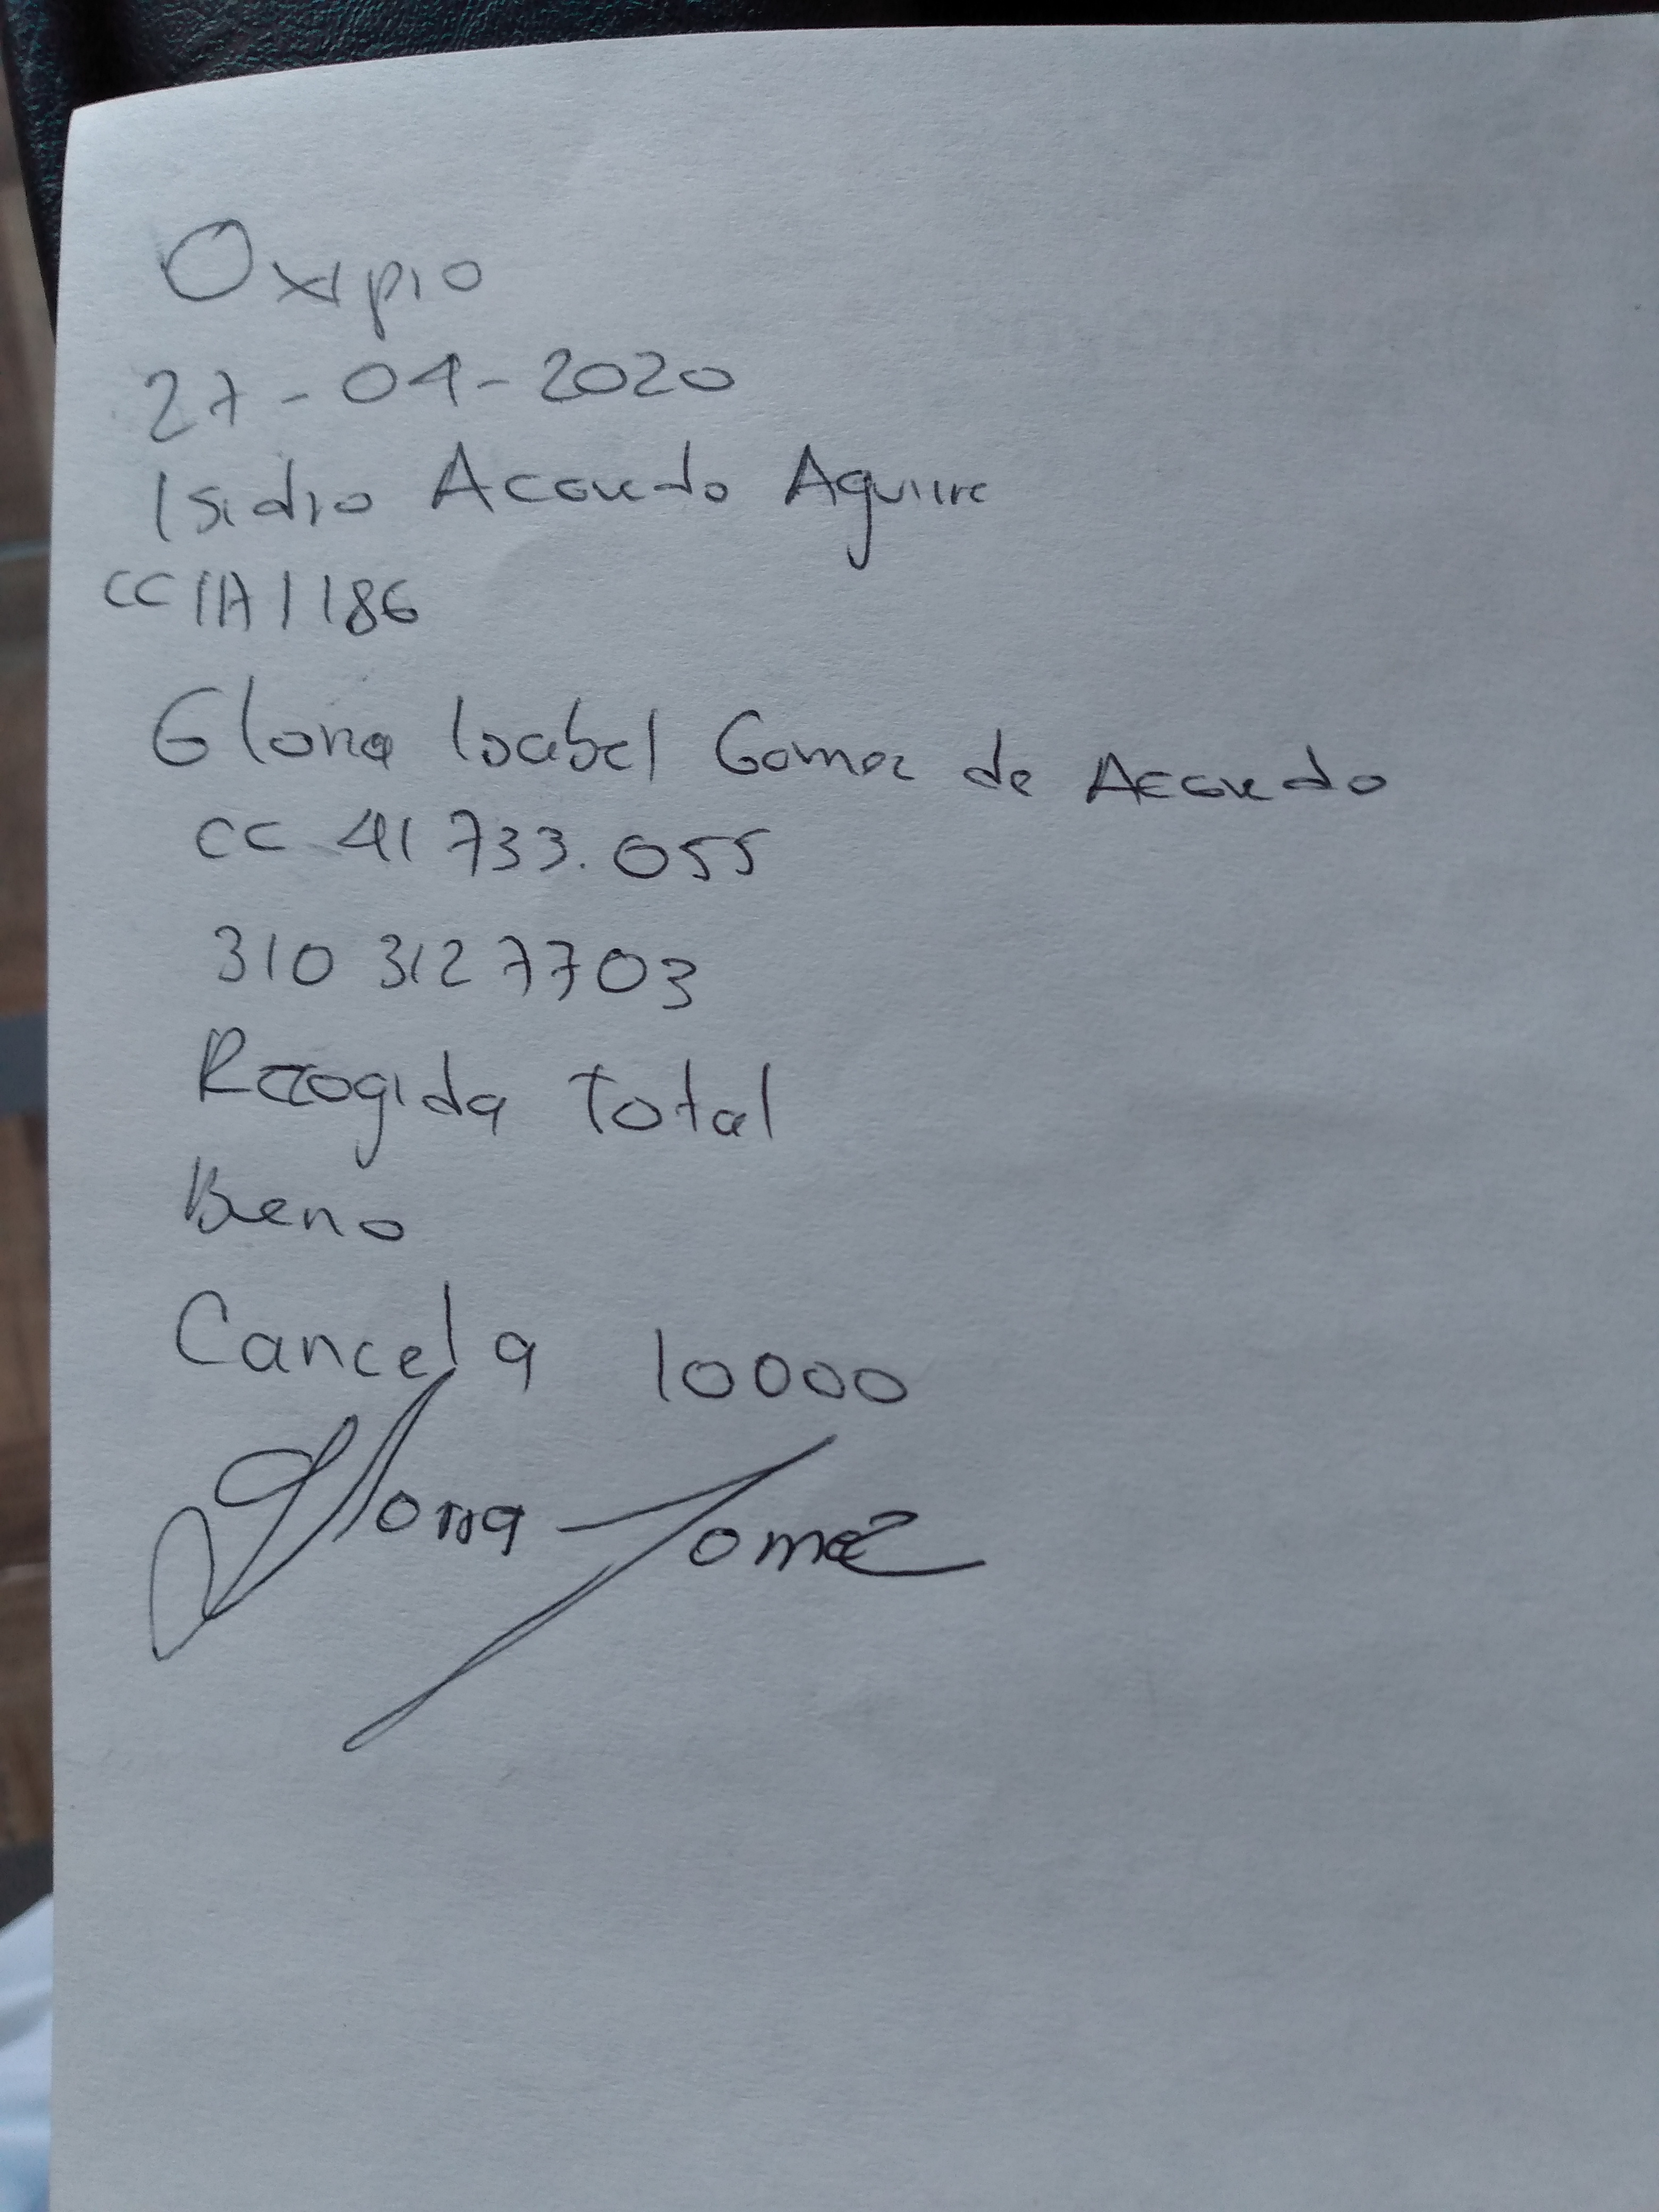 Oxipio
27-04-2020
Isidro Acevedo Aguirre
CC 171186
Gloria Isabel Gomez de Acevedo
CC 41 733.055
310 312 7703
Recogida Total
Bueno
Cancela 10000
Gloria Gomez